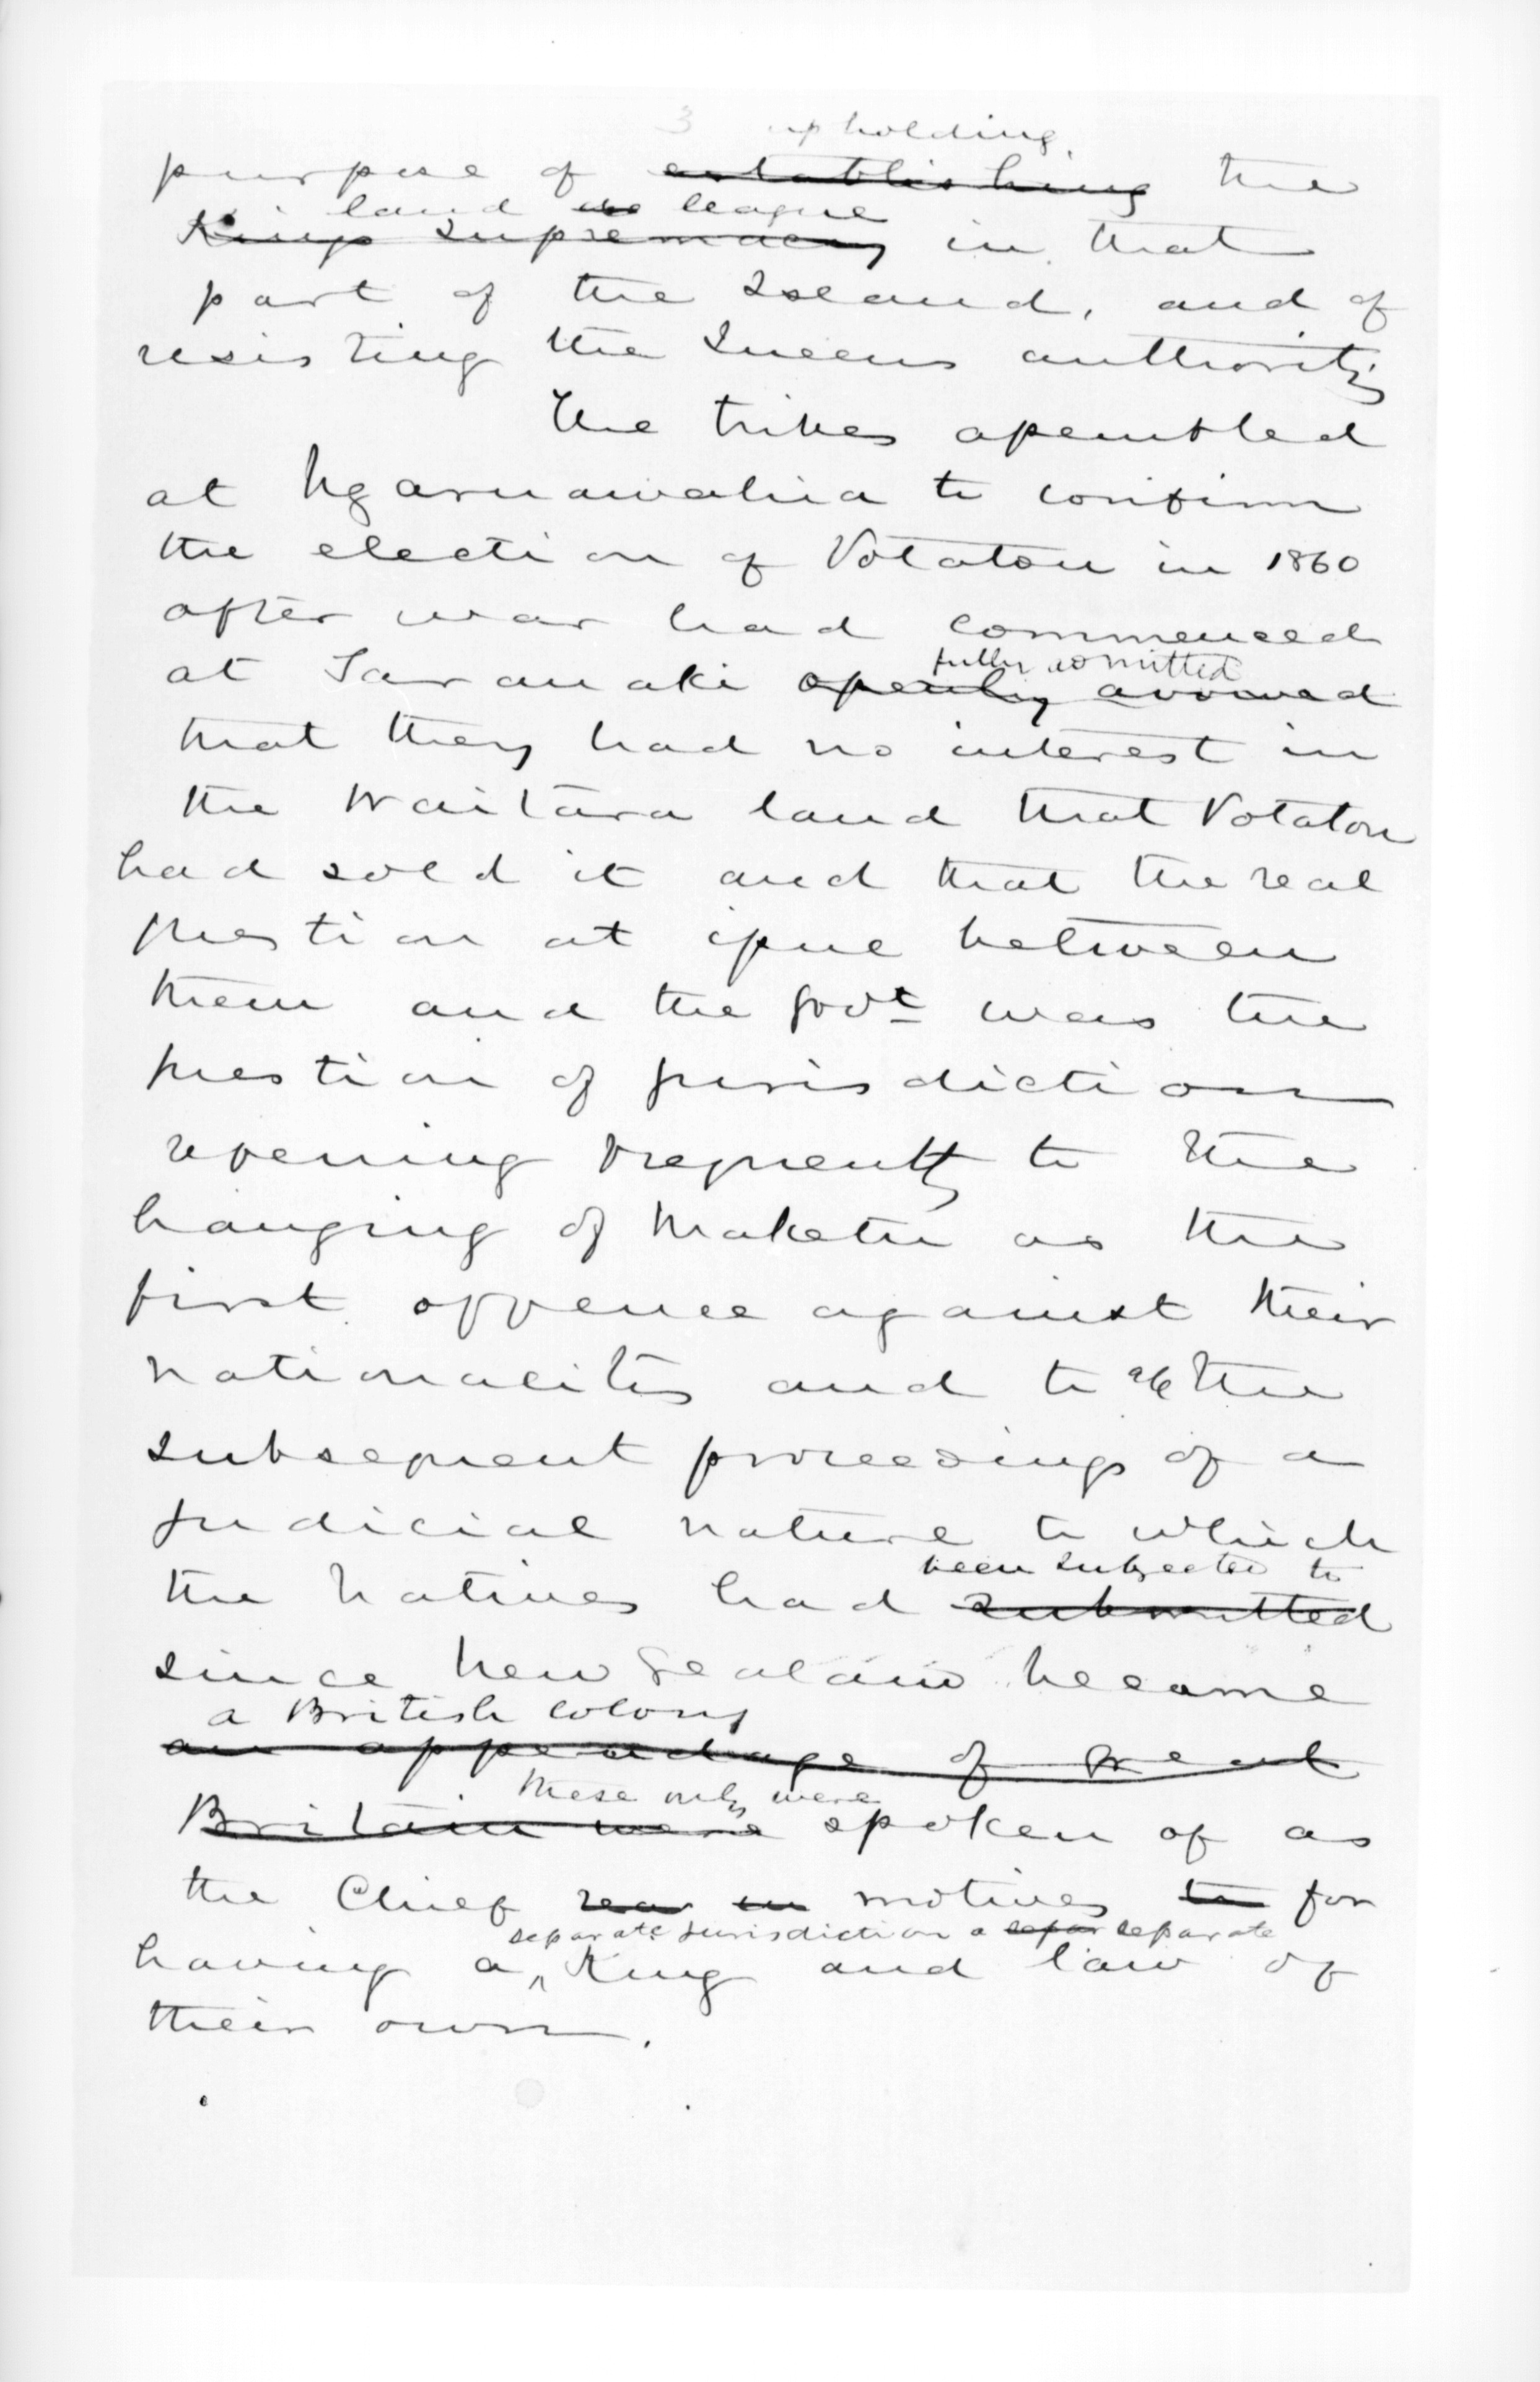 3 upholding
purpose of establishing the
land league
Kings supremacy in that
part of the Island, and of
resisting the Queens authority
The tribes assembled
at Ngaruawahia to confirm
the election of Potatau in 1860
after war had commenced
fully admitted
at Taranaki openly avowed
that they had no interest in
the Waitara land that Potatau
had sold it and that the real
question at issue between
them and the Govt was the
question of jurisdiction
referring frequently to the
hanging of Maketu as the
first offence against their
nationality and to all the
subsequent proceedings of a
judicial nature to which
been subjected to
the Natives had submitted
since New Zealand became
a British Colony
an appendage of Great
these only were
Britain were spoken of as
the Chief motives to for
separate jurisdiction a separ separate
having a King and law of
their own.